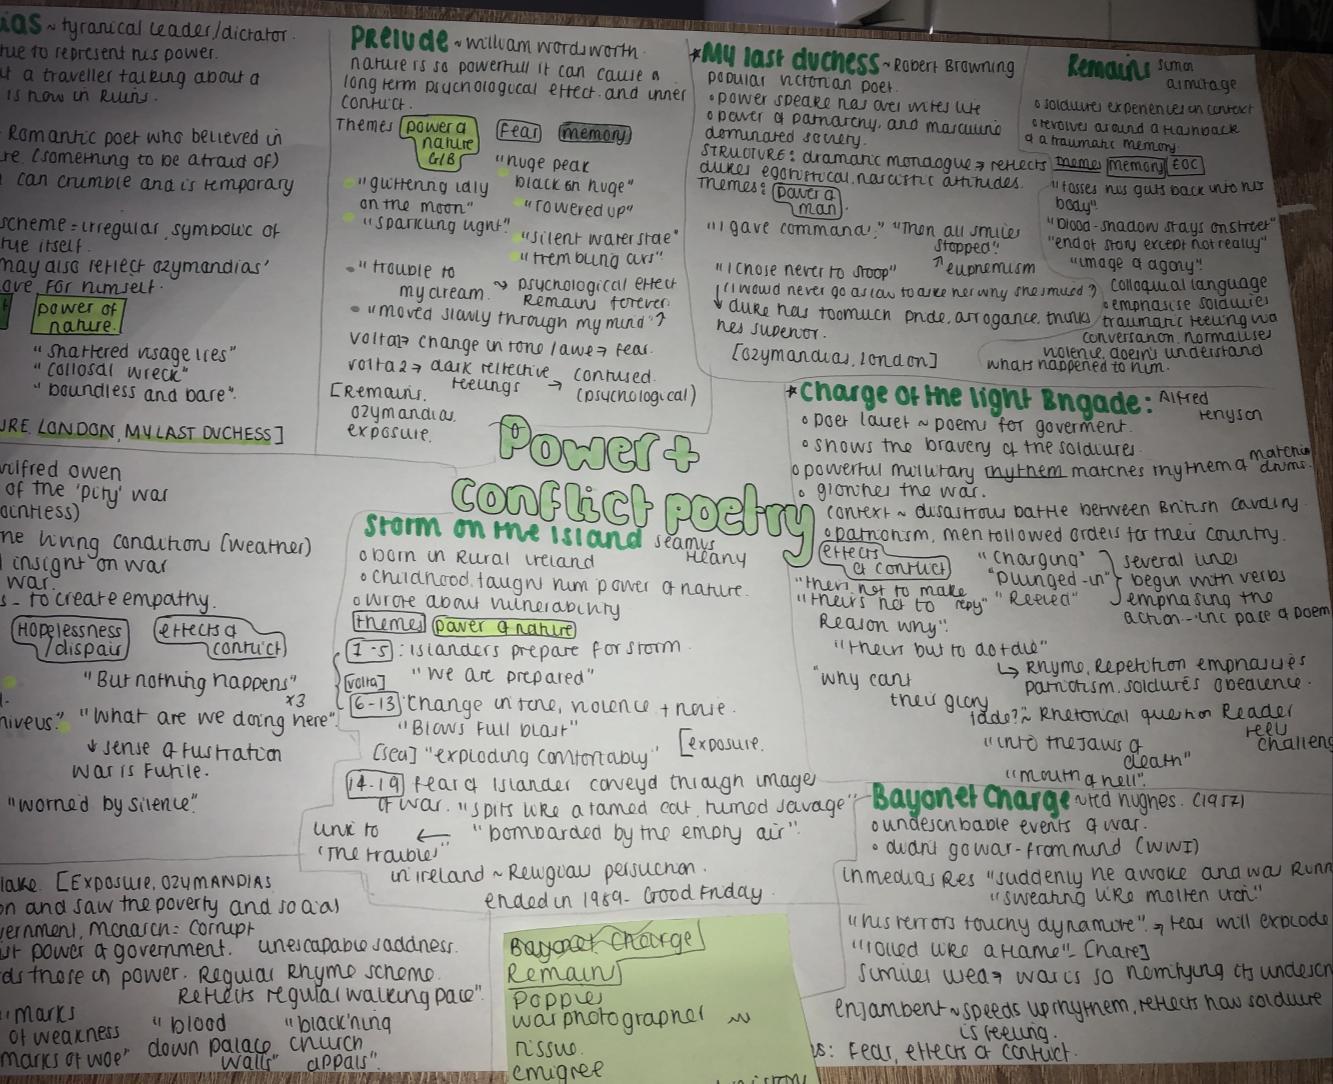 ias ~ tyranical leader/dictator.
tue to represent his power.
t a traveller talking about a
is now in Ruins.
Romantic poet who believed in
re. (something to be afraid of)
can crumble and is temporary
scheme = irregular, symbolic of
tue itself.
may also reflect ozymandias'
ove for himself.
power of
nature.
"shattered visage lies"
"collosal wreck"
"boundless and bare".
URE, LONDON, MY LAST DUCHESS]
Prelude ~ william wordsworth.
nature is so powerfull it can cause a
long term psychological effect. and inner
conflict.
Themes power of nature G/B Fear memory
"huge peak
black an huge"
"glittering idly
on the moon"
"towered up"
"sparkling light"
"silent water stae"
"trembling oars"
"trouble to
my dream. ~> psychological effect
Remains forever.
"moved slowly through my mind"
volta 1 → change in tone / awe → fear.
volta 2 → dark reflective → confused.
feelings (psychological)
[Remains.
ozymandias.
exposure.
*My last duchess ~ Robert Browning
popular victorian poet.
power speake has over wifes life
power of patriarchy, and masculine
dominated society.
STRUCTURE: dramatic monologue → reflects
dukes egotistical, narcistic attitudes.
Themes: power of
man.
"I gave command." "Then all smiles
stopped"
↑ euphemism
"I chose never to stoop"
("I would never go as low to aske her why she smiled?
↓ duke has too much pride, arrogance, thinks
hes superior.
[ozymandias, London]
Remains simon
armitage
soldiures experiences in conflict
revolves around a flashback
of a traumatic memory.
themes memory EOC
"tosses his guts back into his
body".
"blood-shadow stays on street"
"end of story except not really"
"image of agony".
Colloqual language
emphasise soldiures
traumatic feeling via
conversation, normalises
violence, doesn't understand
whats happened to him.
Power +
conflict poetry
*Charge of the light Brigade: Alfred
tenyson
poet lauret ~ poems for goverment.
shows the bravery of the soldiures.
powerful military rhythem matches rhythem of matching
drums.
glorifies the war.
context ~ disastrous battle between British cavalry.
patriotism, men followed orders for their country.
effects
of conflict
"Charging"
"plunged-in"
"Reeled"
several lines
begin with verbs
emphasing the
action - inc pace of poem
"theirs not to make reply"
"theirs not to
Reason why".
"theirs but to do + die"
↳ Rhyme, Repetition emphasises
patriotism. soldiures obedience.
"why cant
their glory
fade?" ~ Rhetorical question Reader
feels
challeng
"into the jaws of
death"
"mouth of hell".
wilfred owen
of the 'pity' war
he living condition (weather)
insight on war
war.
s - to create empathy.
Hopelessness
/dispair
effects of
conflict
"But nothing happens"
x3
"What are we doing here"
↓ sense of fustration
war is Futile.
"worried by silence"
Storm on the Island seamus
Heany
born in Rural ireland
childhood, taught him power of nature.
wrote about vulnerability
themes power of nature
1-5: islanders prepare for storm.
volta "We are prepared"
6-13: change in tone, violence + noise.
"Blows full blast"
[sea] "exploding comfortably" [exposure.
14-19 fear of Islander conveyd through images
of war. "spits like a tamed cat, turned savage"
link to ← "bombarded by the empty air".
'The troubles'
in ireland ~
ended in 1989 - Good Friday.
Bayonet Charge ~ ted hughes. (1957)
undescribable events of war.
didnt go war - from mind (WWI)
in medias Res "suddenly he awoke and was Runn
"sweating like molten iron."
"his terrors touchy dynamite". → fear will explode
"rolled like a flame" - [hare]
similes used → war is so horrifying its undescr
enjambent ~ speeds up rhythem, reflects how soldiure
is feeling.
s: Fear, effects of conflict.
lake. [EXPOSURE, OZYMANDIAS
on and saw the poverty and social
vernment, monarch = corrupt
power of government. unescapable saddness.
ds those in power. Regular Rhyme scheme.
Reflects regular walking pace".
"marks
of weakness
marks of woe"
"blood
down palace
walls"
"black'ning
church
appals".
Bayonet Charge
Remain
Poppies
war photographer ~
Tissue.
emigree